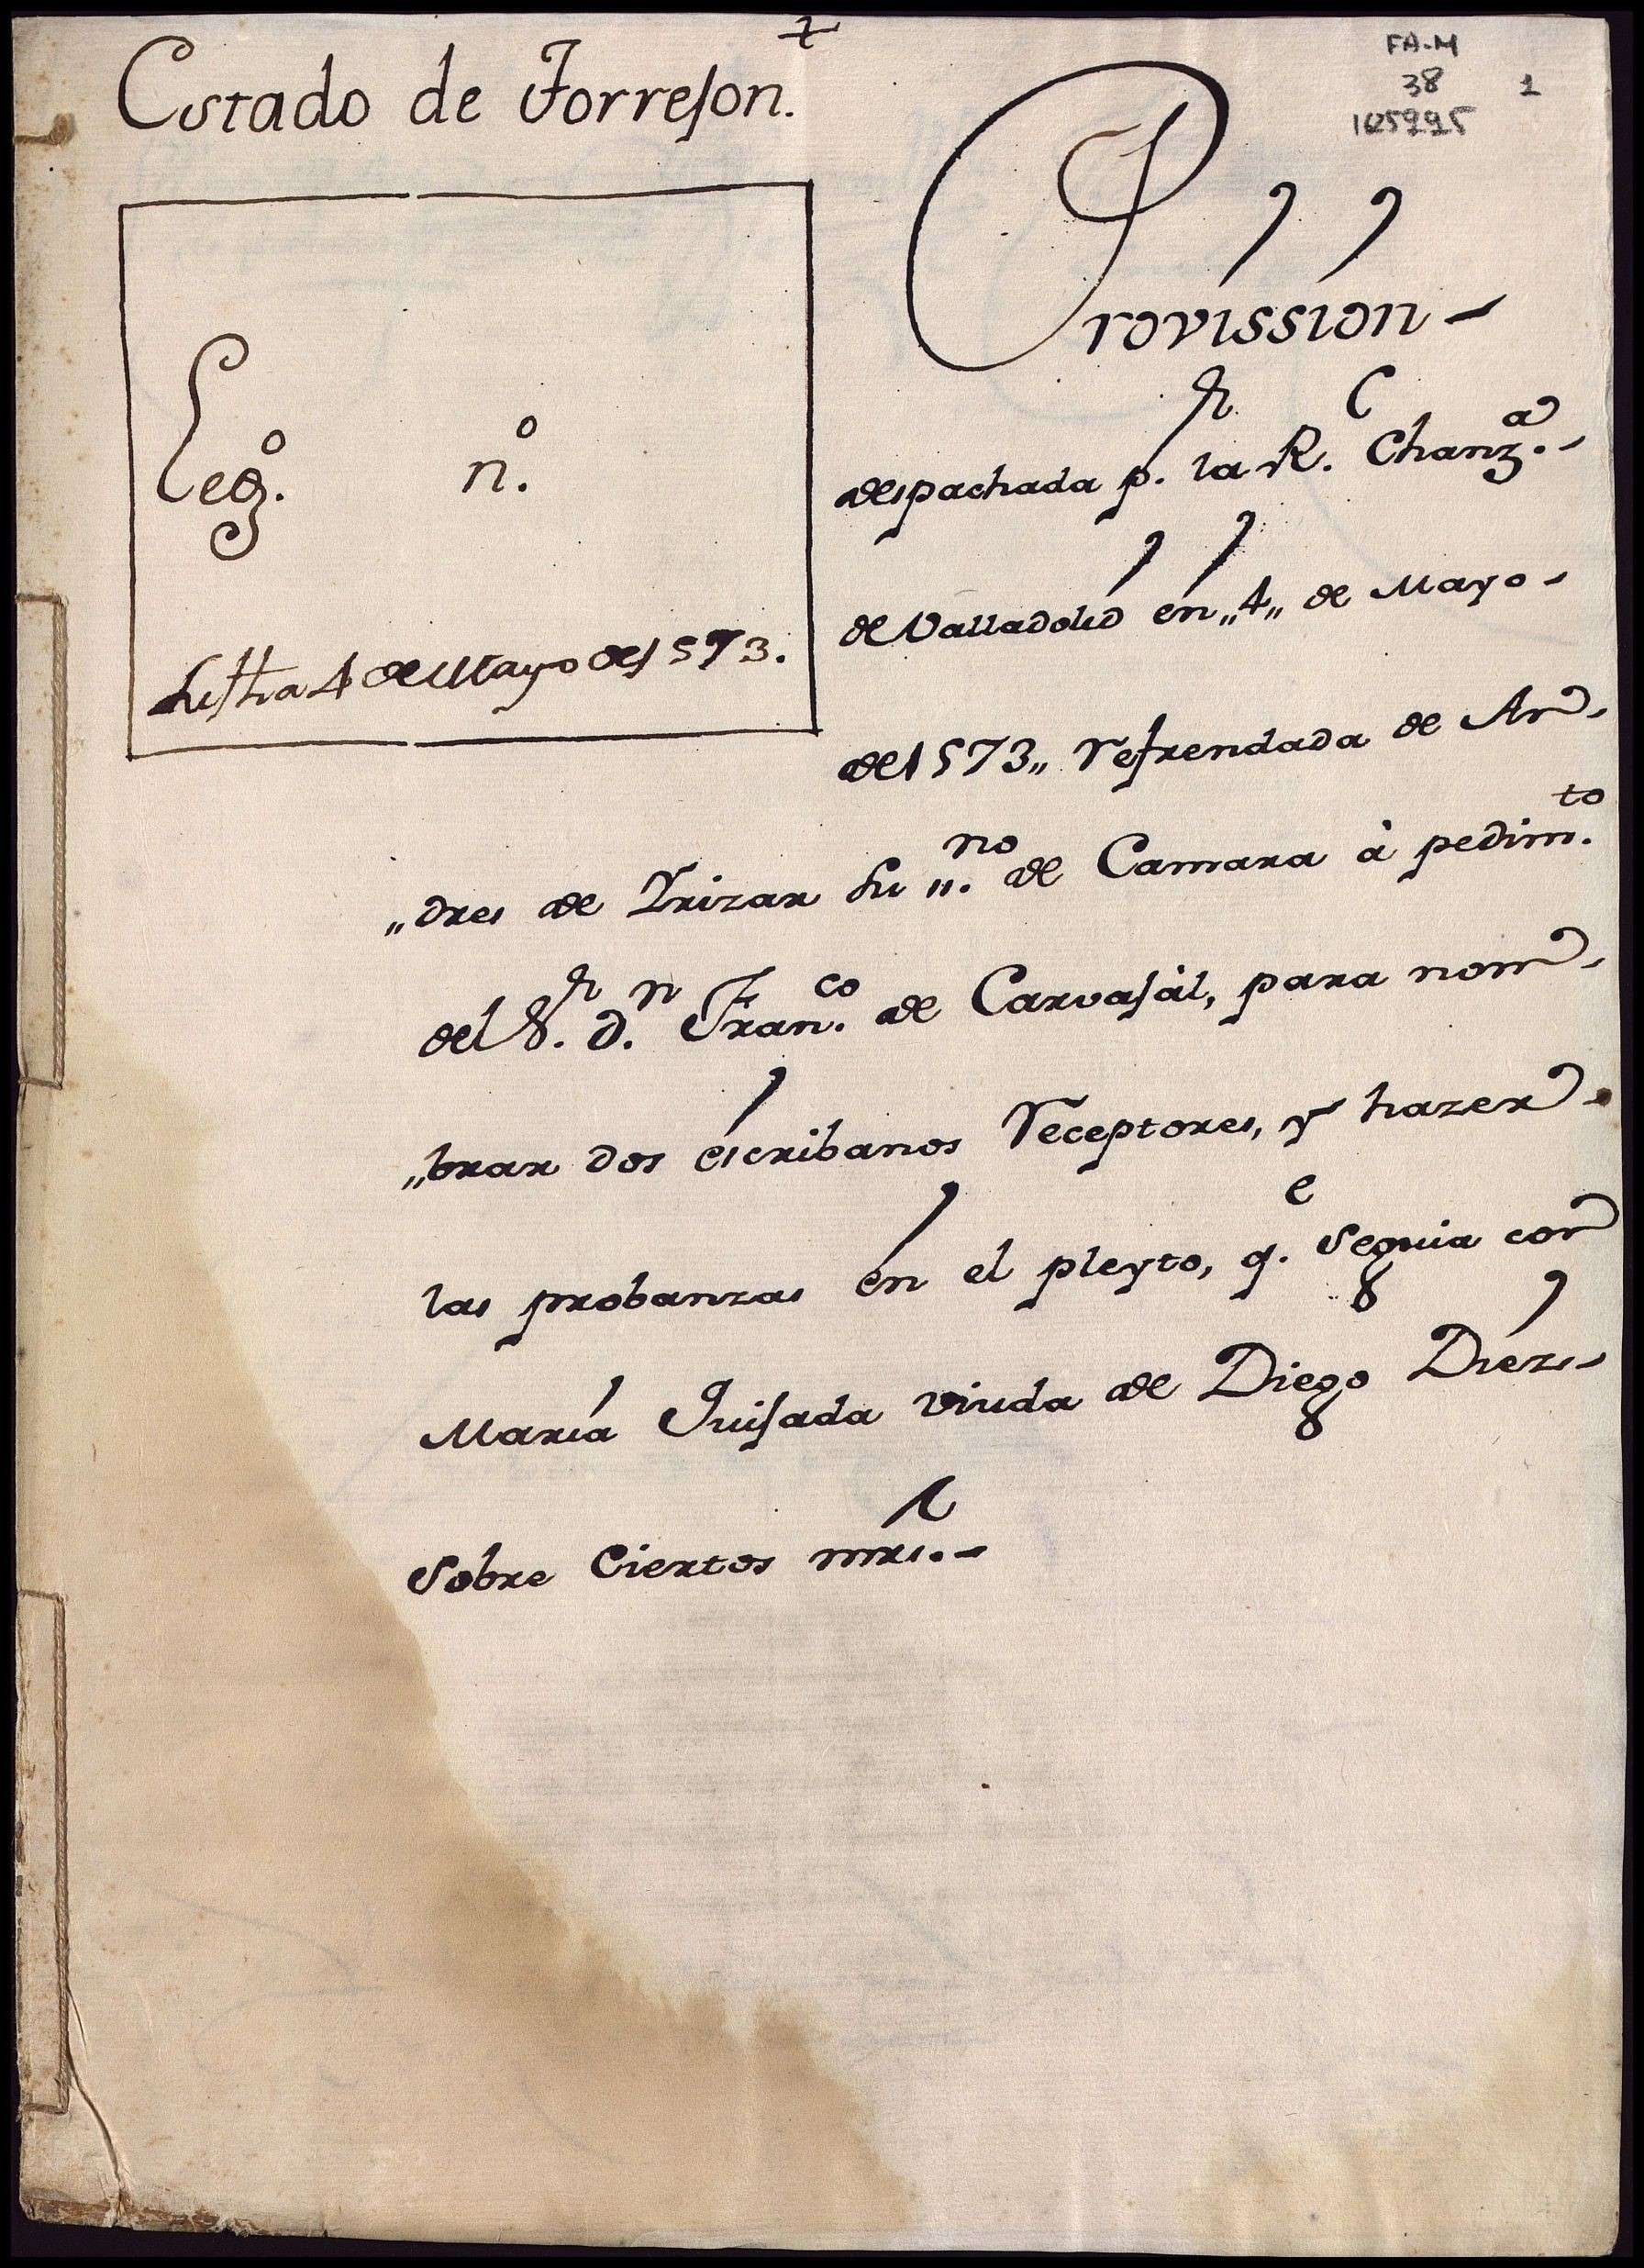 Estado de Torrejon.
FA-M
38
105995
1
Leg.º n.º
Su fha 4 de Mayo de 1573.
Provission
despachada p.r la R.l Chanz.a
de Valladolid en,,4,, de Mayo
de 1573,, refrendada de An
,,dres de Yrizar su ,,.no de Camara à pedim.to
del S.r d.n Fran.co de Carvajàl, para nom
,,brar dos escribanos receptores, y hazer
las probanzas en el pleyto, q.e seguia con
María Quijada viuda de Diego Diez
sobre ciertos mrs.